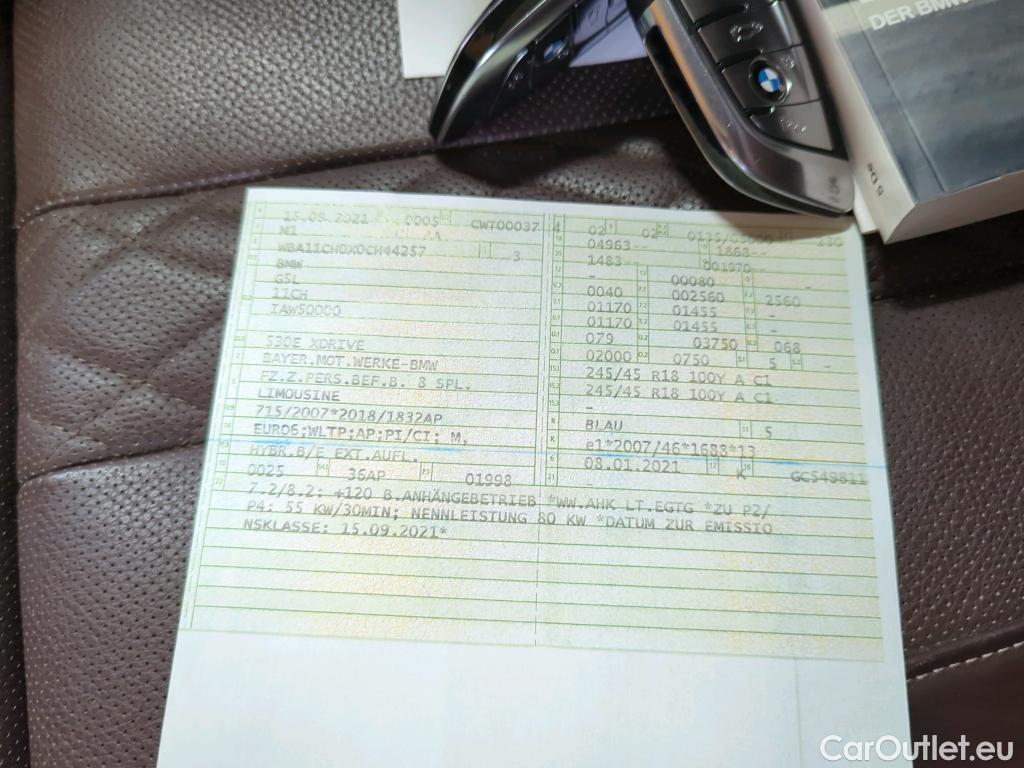 DER BMW
15.09.2021 0005 CWT00037 4
M1 AA
3
BMW
G5L
11CH
IAW50000
530E XDRIVE
BAYER.MOT.WERKE-BMW
FZ.Z.PERS.BEF.B. 8 SPL.
LIMOUSINE
715/2007*2018/1832AP
EURO6;WLTP;AP;PI/CI; M,
HYBR.B/E EXT.AUFL.
0025 36AP 01998
02 02 230
04963-- 1868--
1483-- 001970--
- 00080
0040 002560 2560
01170 01455 -
01170 01455 -
079 03750 068
02000 0750 5 -
245/45 R18 100Y A C1
245/45 R18 100Y A C1
-
BLAU 5
e1*2007/46*1688*13
08.01.2021 K GC549811
-
7.2/8.2: +120 B.ANHÄNGEBETRIEB *WW.AHK LT.EGTG *ZU P2/
P4: 55 KW/30MIN; NENNLEISTUNG 80 KW *DATUM ZUR EMISSIO
NSKLASSE: 15.09.2021*
CarOutlet.eu